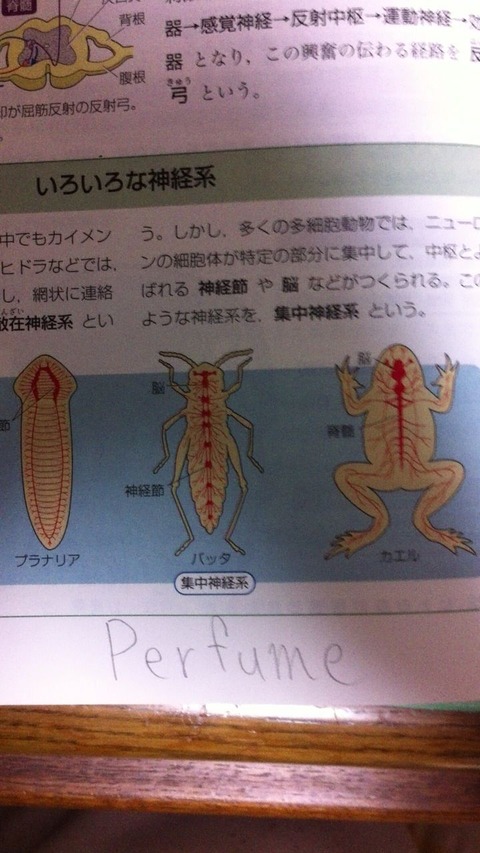 脊髄
背根
腹根
印が屈筋反射の反射弓。
器→感覚神経→反射中枢→運動神経→
器 となり、この興奮の伝わる経路を
きゅう
弓 という。
いろいろな神経系
中でもカイメン
ヒドラなどでは、
し、網状に連絡
んざい
散在神経系 とい
う。しかし、多くの多細胞動物では、ニューロ
ンの細胞体が特定の部分に集中して、中枢とよ
ばれる 神経節 や 脳 などがつくられる。この
ような神経系を、集中神経系 という。
節
プラナリア
脳
神経節
バッタ
脳
脊髄
カエル
集中神経系
Perfume